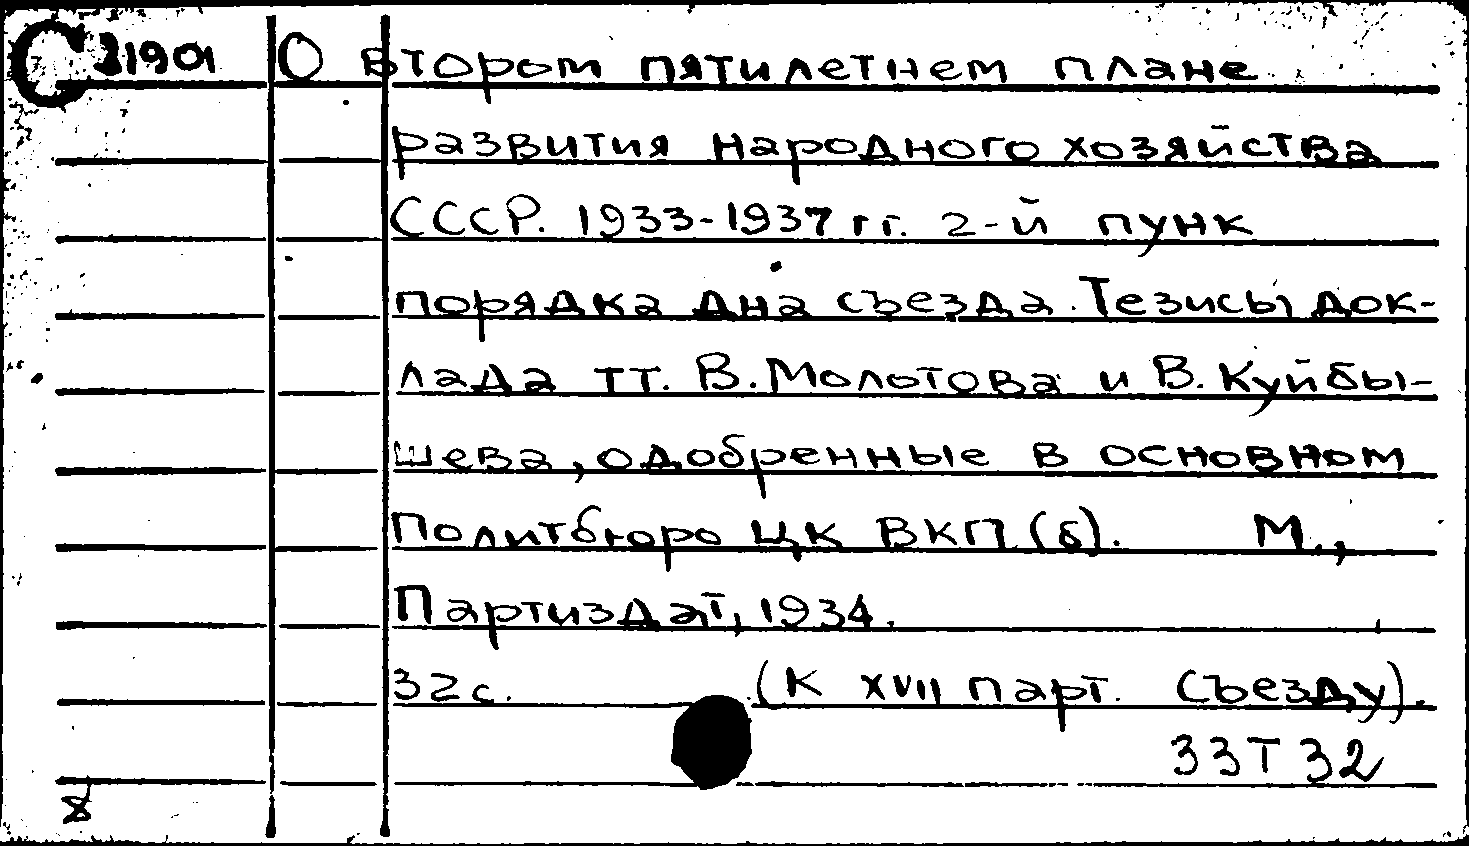 О втором пятилетнем плане
развития народного хозяйства
СССР. 1933-1937 гг. 2-й пунк
порядка дна съезда. Тезисы док-
лада тт. В. Молотова и В. Куйбы-
шева, одобренные в основном
Политбюро ЦК ВКП(б). М.,
Партиздат, 1934.
32с. (К XVII парт. съезду).
33Т32